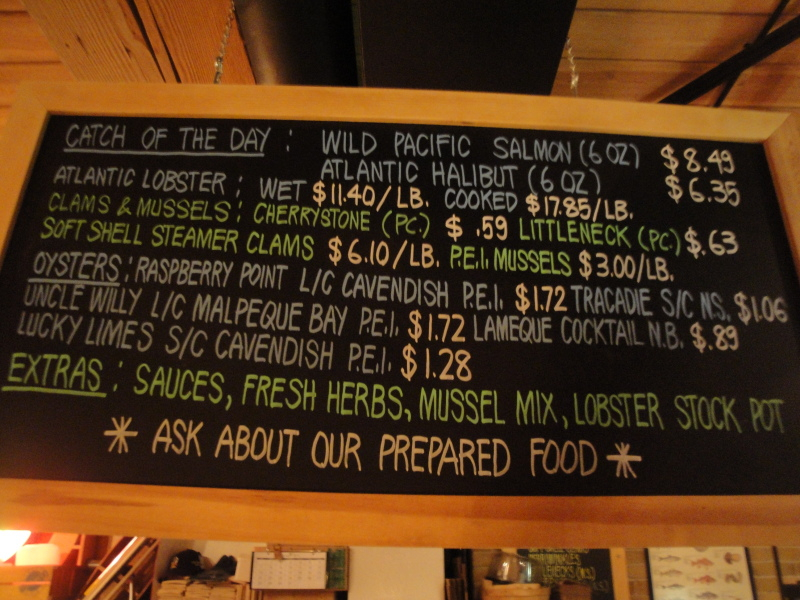 CATCH OF THE DAY : WILD PACIFIC SALMON (6 OZ) $8.49
ATLANTIC HALIBUT (6 OZ) $6.35
ATLANTIC LOBSTER : WET $11.40/LB. COOKED $17.85/LB.
CLAMS & MUSSELS : CHERRYSTONE (PC.) $ .59 LITTLENECK (PC.) $.63
SOFT SHELL STEAMER CLAMS $6.10/LB. P.E.I. MUSSELS $3.00/LB.
OYSTERS : RASPBERRY POINT L/C CAVENDISH P.E.I. $1.72 TRACADIE S/C N.S. $1.06
UNCLE WILLY L/C MALPEQUE BAY P.E.I. $1.72 LAMEQUE COCKTAIL N.B. $.89
LUCKY LIMES S/C CAVENDISH P.E.I. $1.28
EXTRAS : SAUCES, FRESH HERBS, MUSSEL MIX, LOBSTER STOCK POT
* ASK ABOUT OUR PREPARED FOOD *